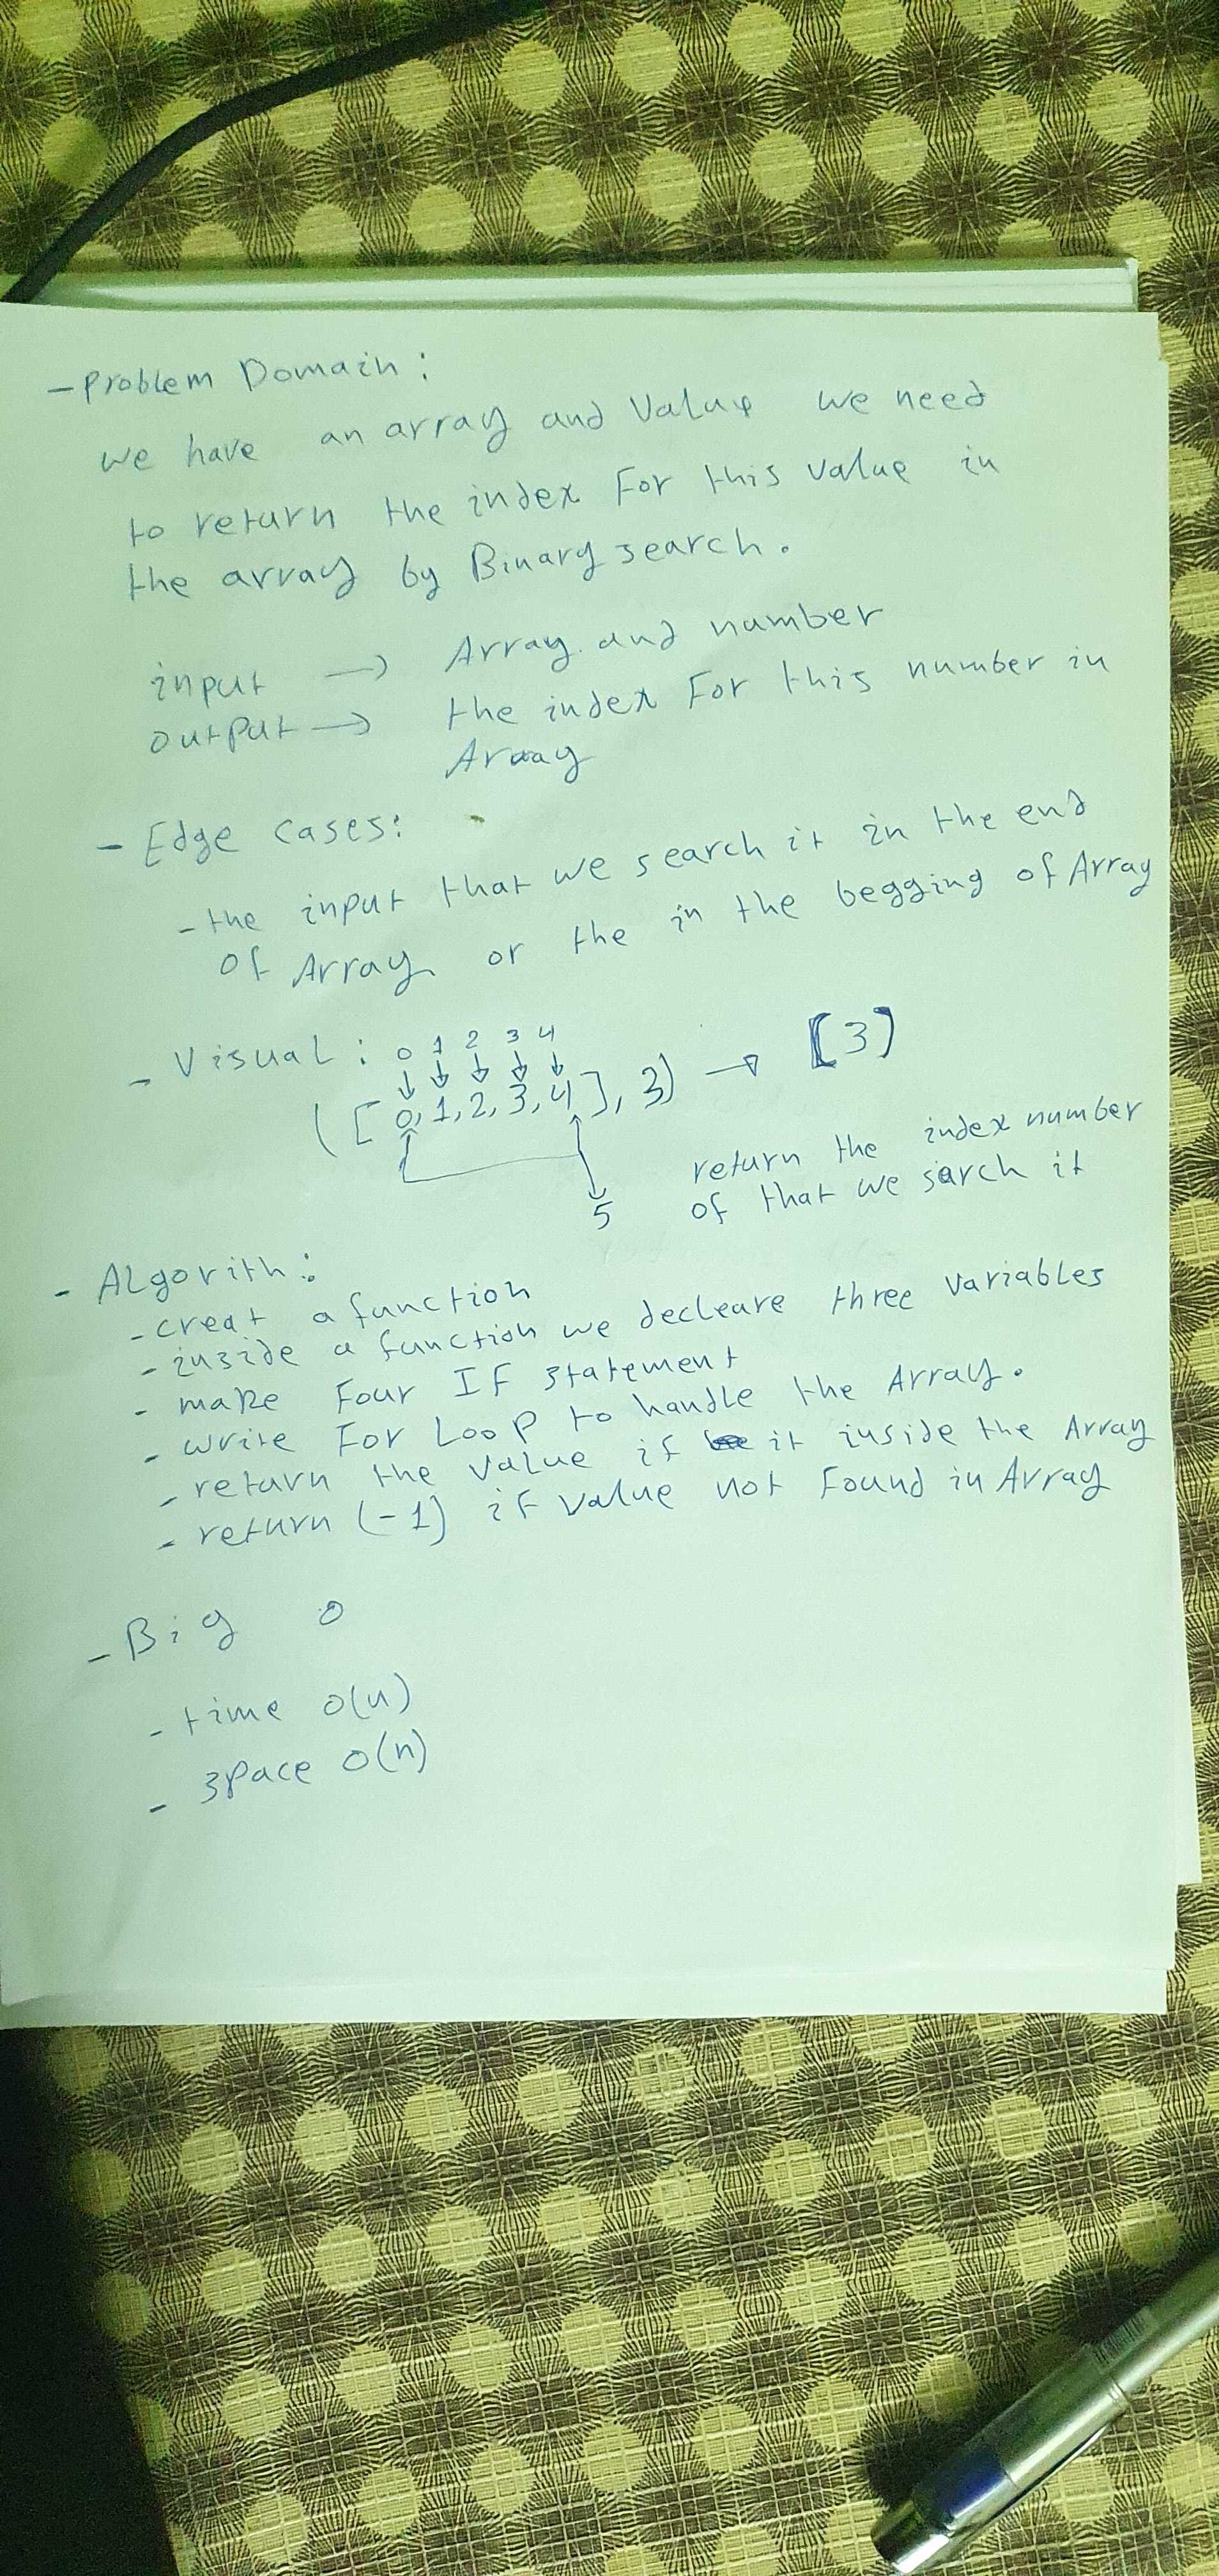 - Problem Domain :
we have an array and Value we need
to return the index For this value in
the array by Binary search.
input → Array and number
output → the index For this number in
Araay
- Edge cases:
- the input that we search it in the end
of Array or the in the begging of Array
- Visual : 0 1 2 3 4
([0,1,2,3,4],3) → [3]
5
return the index number
of that we sarch it
- ALgorith :
- creat a function
- inside a function we decleare three variables
- make Four IF statement
- write For Loop to handle the Array.
- return the value if it inside the Array
- return (-1) if value not Found in Array
- Big O
- time O(n)
- space O(n)